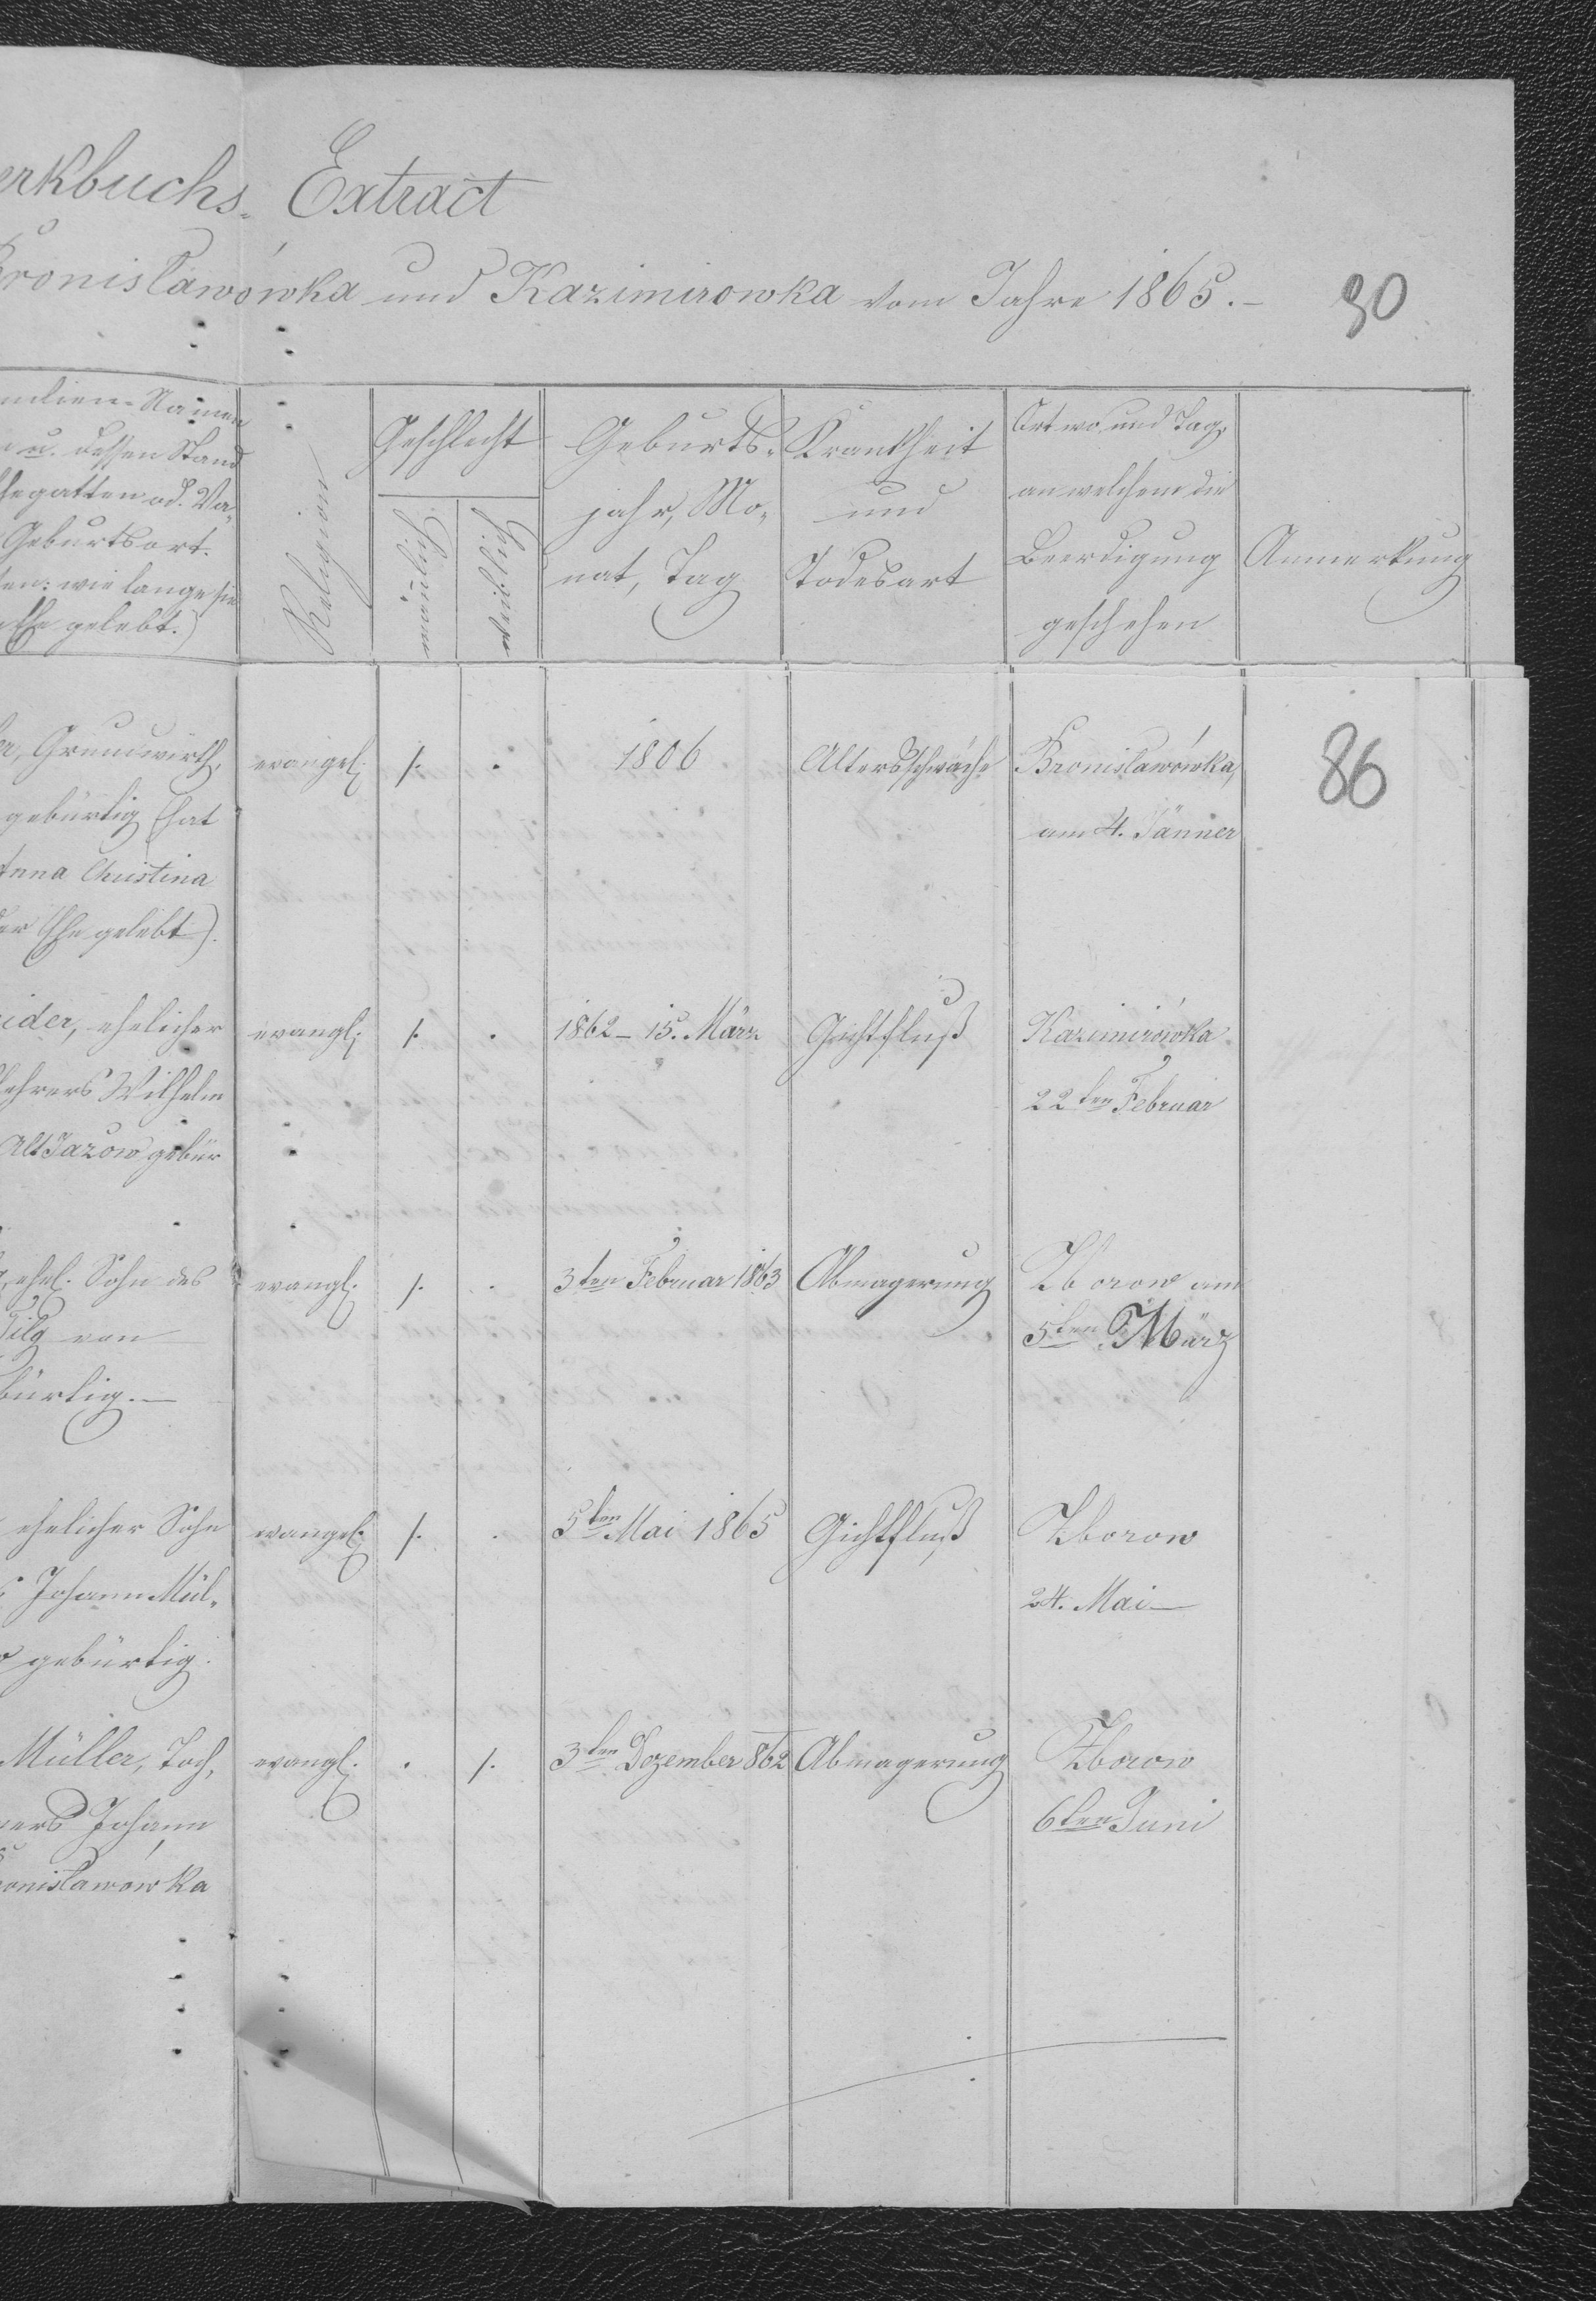 erkbuchs- Extract
Bronisławówka und Kazimirowka vom Jahre 1865.-
30
milien-Namen
u. dessen Stand
hegatten od. Va-
Geburtsort.
ten: wie lange sie
Ehe gelebt.)
Religion
Geschlecht
mänlich
weiblich
Geburts-
jahr, Mo-
nat, Tag
Krankheit
und
Todesart
Ort wo und Tag,
an welchem die
Beerdigung
geschehen
Anmerkung
er, Grundwirth,
gebürtig (hat
Anna Christina
der Ehe gelebt).
evangel.
/.
.
1806
Altersschwäche
Bronisławówka,
am 4. Jänner
86
ider, ehelicher
lehrers Wilhelm
Alt Jazow gebür
evangl.
/.
.
1862 - 15. März
Gichtfluß
Kazimirówka
22ten Februar
ehel. Sohn des
Gilg von
bürtig.-
evangl.
/.
.
3ten Februar 1863
Abmagerung
Zborow am
5ten März
ehelicher Sohn
Johann Mül-
gebürtig.
evangel.
/.
.
5ten Mai 1865
Gichtfluß
Zborow
24. Mai -
Müller, Toch-
ners Johann
ronisławówka
evangl.
.
/.
3ten Dezember 862
Abmagerung
Zborow
6ten Juni